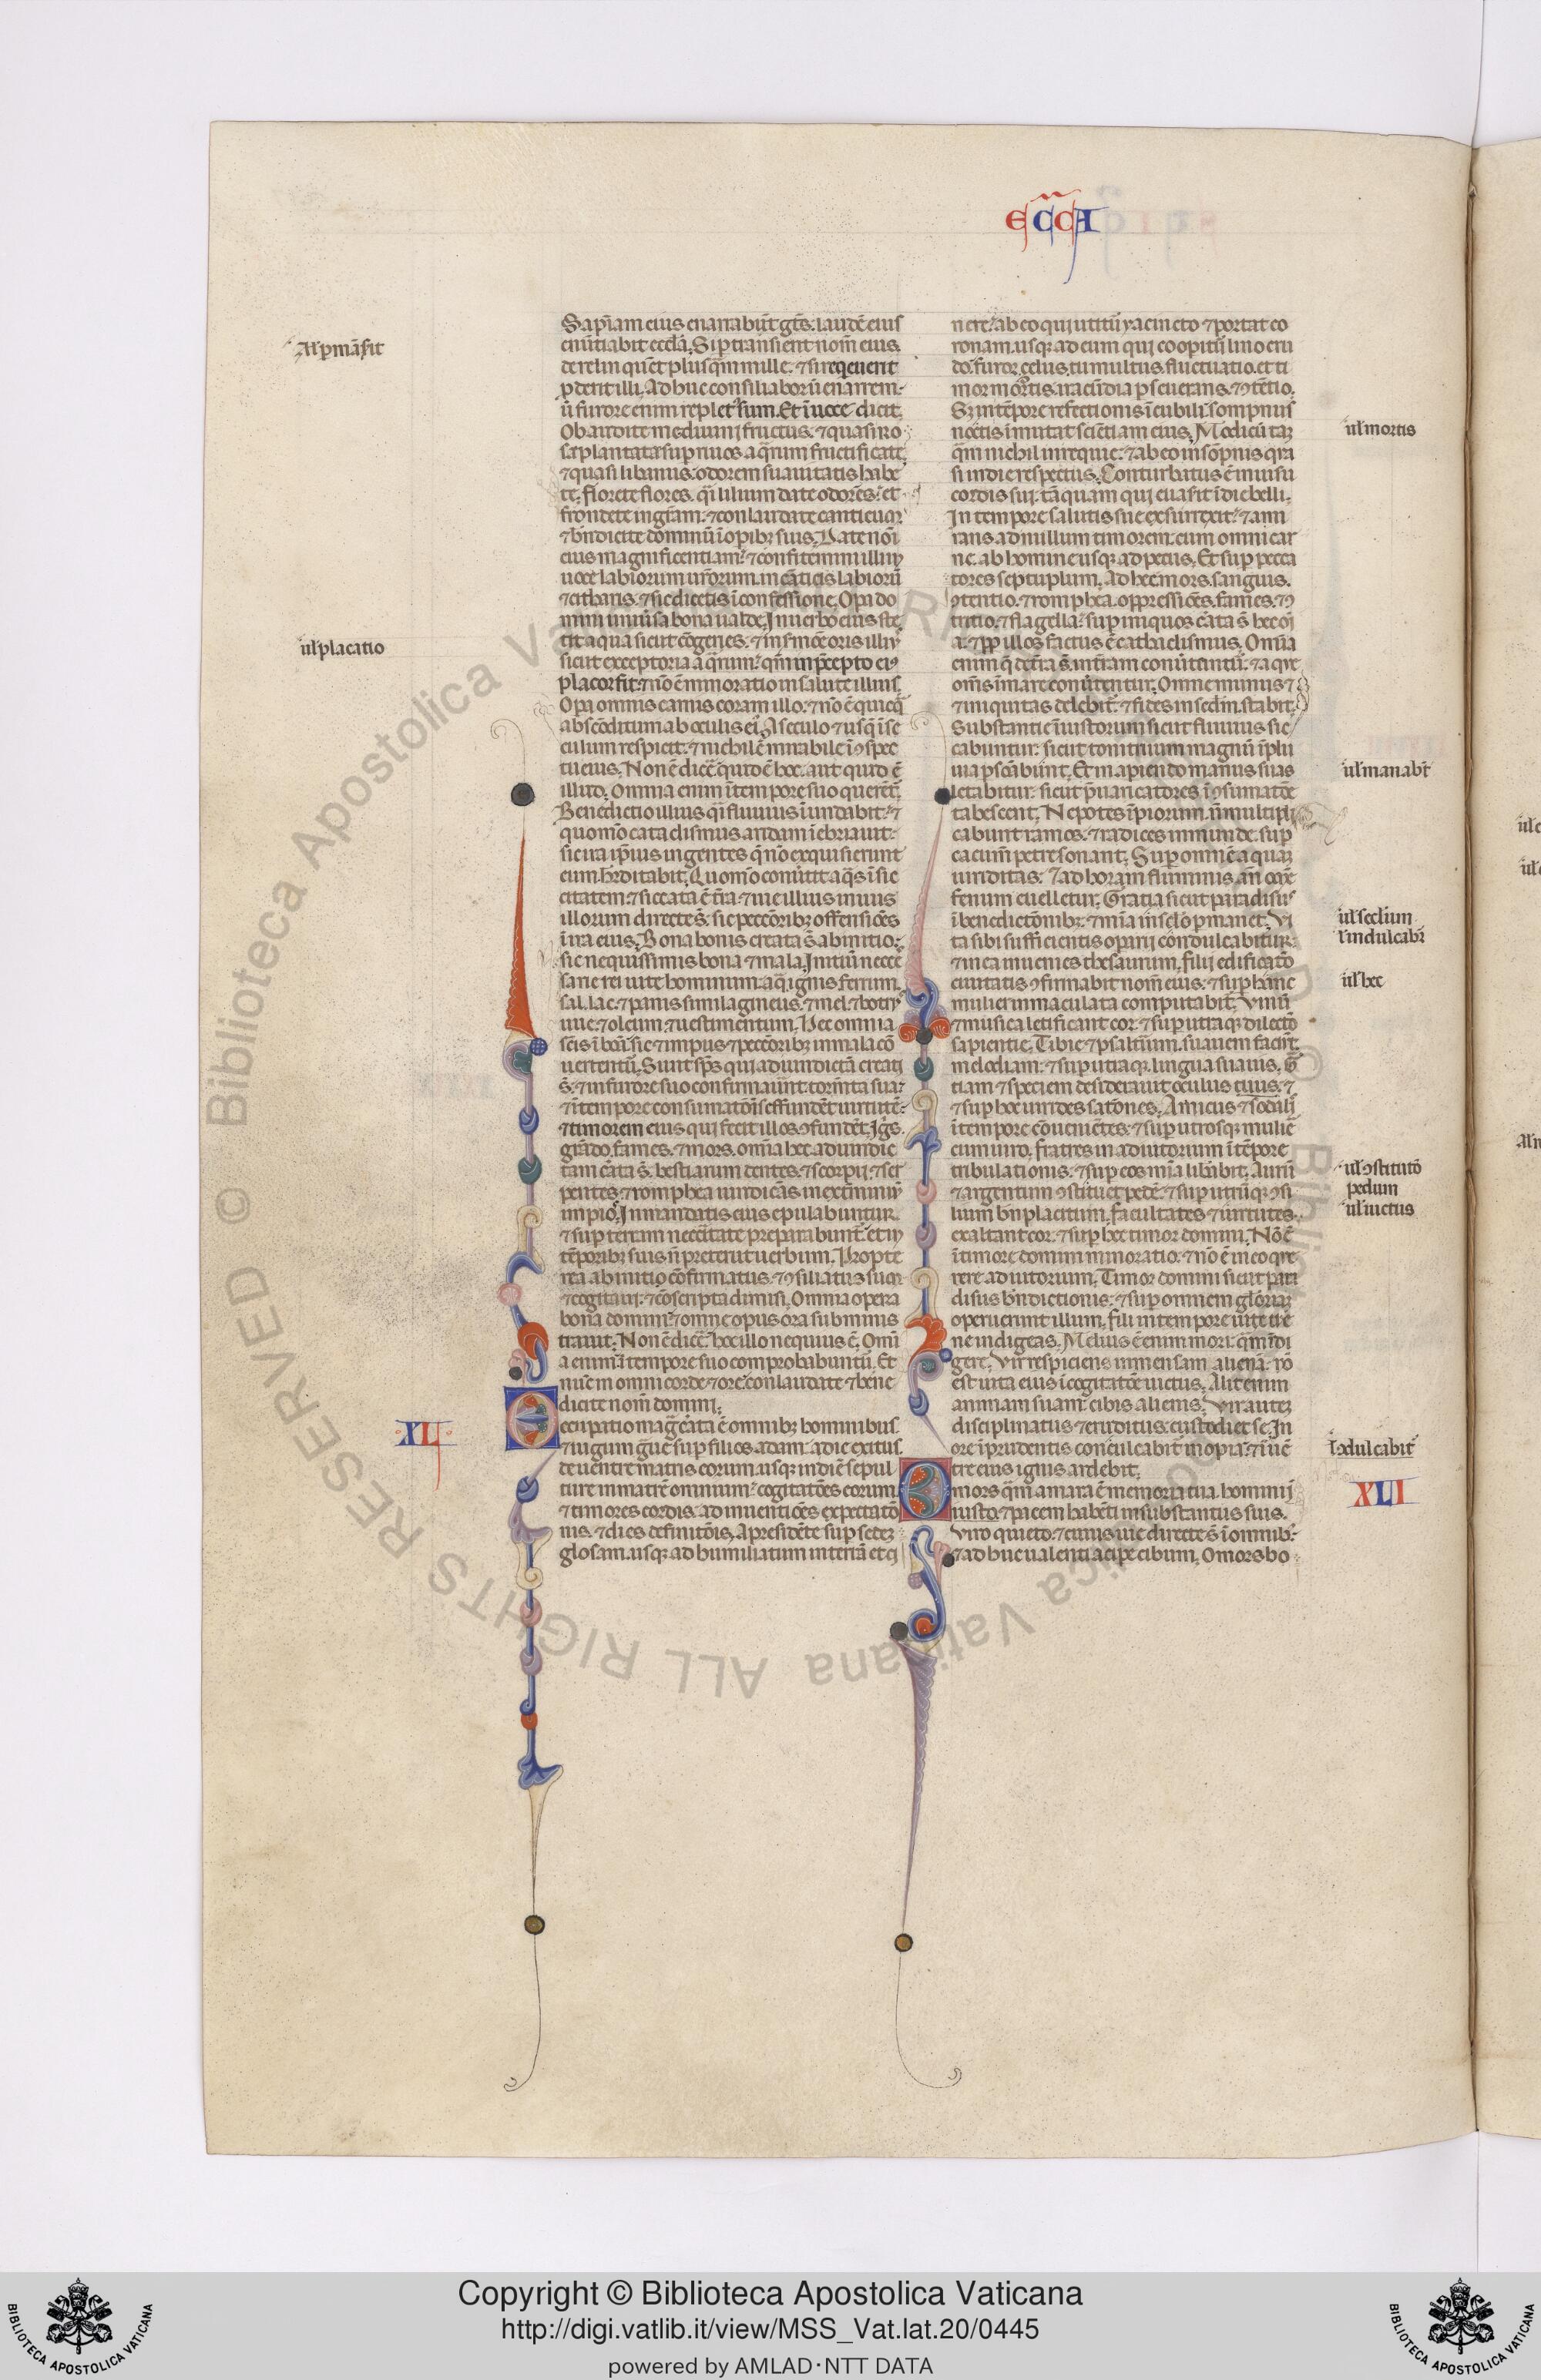 ECCA
Sapiam eius enarrabūt gēs. laudē eius
enūtiabit ecclā. Si ptransierit nom̄ eius.
derelinquet plusq̄m mille. ⁊ si reqeuerit
pderit illi. Adhuc consiliabor ūt enarrem.
ū furore enim replet᷑ sum. Et ī uoce dicit.
Obaudite me diuini fructus. ⁊ quasi ro
sa plantata sup riuos aq̄rum fructificate.
⁊ quasi libanus. odorem suauitatis habe
te. florete flores. q̄i lilium date odorēs. et
frondete in grām. ⁊ conlaudate canticum
⁊ bn̄dicite dominū ī opib; suis. Date nōi
eius magnificentiam. ⁊ confitemini illi in
uoce labiorum ur̄orum. in cāticis labiorū
⁊ citharis. ⁊ sic dicetis ī confessione. Opa do
mini uniūsa bona ualde. In uerbo eius ste
tit aqua sicut cōgeries. ⁊ in s̄mōe oris illiꝰ
sicut exceptoria aq̄rum. qm̄ in p̄cepto eiꝰ
placor fit. ⁊ nō ē minoratio in salute illius.
Opa omnis carnis coram illo. ⁊ nō ē quicq̄
absconditum ab oculis eiꝰ. A seculo ⁊ usq̄ ī se
culum respicit. ⁊ nichil ē mirabile ī ꝯspec
tu eius. Non ē dicē quid ē hoc. aut quid ē
illud. Omnia enim ī tempore suo querēt᷑.
Benedictio illius q̄i fluuius inundabit. ⁊
quomō cataclismus aridam īebriauit.
sic ira ipīus in gentes q̄ nō exquisierunt
eum h̄editabit. Quomō conūtit aq̄s ī sic
citatem. ⁊ siccata ē t̄ra. ⁊ uie illius in uiis
illorum directe s̄. sic peccōrib; offensiōes
ī ira eius. Bona bonis creata s̄ ab initio.
sic nequissimis bona ⁊ mala. Initiū necē
sarie rei uite hominum. aq̄. ignis. ferrum.
sal. lac. ⁊ panis similagineus. ⁊ mel. ⁊ botrꝰ
uue. ⁊ oleum. ⁊ uestimentum. Hec omnia
scīs ī bon̄. sic ⁊ impiis ⁊ peccōrib; in mala cō
uertentū. Sunt sp̄s qui ad uindictā creati
s̄. ⁊ in furore suo confirmauīt tormta sua.
⁊ ī tempore consumatōis effundēt uirtutē.
⁊ timorem eius qui fecit illos ꝯfundēt. Igīs.
grādo. fames. ⁊ mors. om̄ia hec ad uindic
tam cāta s̄. bestiarum dentes. ⁊ scorpii. ⁊ ser
pentes. ⁊ romphea uindicās in extīminiū
impios. In mandatis eius epulabuntur.
⁊ sup terram neccītate preparabunt᷑. et in
tēporib; suis n̄ preterient uerbum. Propte
rea ab initio cōfirmatus. ⁊ ꝯsiliatus sum
⁊ cogitaui. ⁊ cōscripta dimisi. Omnia opera
bona domini. ⁊ omne opus ora subminis
trauit. Non ē dicē. hoc illo nequius ē. Omī
a enim ī tempore suo comprobabuntū. Et
nūc in omni corde ⁊ ore conlaudate ⁊ bene
dicite nom̄ domini.
Occupatio maḡ cāta ē omnib; hominibus.
⁊ iugum ḡue sup filios adam. a die exitus
de uentre matris eorum. usq; in diē sepul
ture in matrē omnium. cogitatōes eorum.
⁊ timores cordis. ad inuentiōes expectatō
nis. ⁊ dies definitōis. A presidēte sup sedez
gl̄osam. usq; ad humiliatum in terra ⁊ ci
nere. ab eo qui utitū yacincto ⁊ portat co
ronam. usq; ad eum qui coopitū lino cru
do. furor. celus. tumultus. fluctuatio. et ti
mor mortis. iracūdia pseuerans. ⁊ ꝯtētio.
Sz in tēpore refectionis ī cubili. sompnus
noctis īmutat scientiam eius. Modicū taz
q̄m nichil in requie. ⁊ ab eo in sōpnis q̄ia
si in die respectus. Conturbatus ē in uisu
cordis sui. tāquam qui euasit ī die belli.
In tempore salutis sue exsurrexit. ⁊ ami
rans ad nullum timorem. cum omni car
ne. ab homine usq; ad pecus. Et sup pecca
tores septuplum. Ad hec mors. sanguis.
ꝯtentio. ⁊ romphea. oppressiōes. fames. ⁊ ꝯ
tritio. ⁊ flagella. sup iniquos cāta s̄ hec oī
a. ⁊ pp illos factus ē cathaclismus. Om̄ia
enim q̄ de t̄ra s̄. in t̄ram conūtentū. ⁊ aque
om̄s ī mare conūtentur. Omne munus ⁊
⁊ iniquitas delebit᷑. ⁊ fides in sedm̄. stabit.
Substantie īiustorum sicut fluuius sic
cabuntur. sicut tonitruum magnū ī plu
uia psōabunt. Et in apiendo manus suas
letabitur. sicut p̄uaricatores ī ꝯsumatōe
tabescent. Nepotes īpiorum. n̄ multipli
cabunt ramos. ⁊ radices inmunde. sup
cacum̄ petre sonant. Sup omnē aquaz
uiriditas. ⁊ ad horam fluminis an̄ om̄e
fenum euelletur. Gratia sicut paradisus
ī benedictōnib;. ⁊ mīa in sclo pmanet. Vi
ta sibi sufficientis operarij condulcabitur.
⁊ in ea inuenies thesaurum. filij edificatō
ciuitatis ꝯfirmabit nom̄ eius. ⁊ sup hanc
mulier inmaculata computabit᷑. Vinū
⁊ musica letificant cor. ⁊ sup utraq; dilectō
sapientie. Tibie ⁊ psalt̄ium. suauem faciūt
melodiam. ⁊ sup utraq; lingua suauis. G̅
tiam ⁊ speciem desiderauit oculus tuus. ⁊
⁊ sup hoc uirides satōnes. Amicus ⁊ sodalis
ī tempore cōuenientes. ⁊ sup utrosq; mulier
cum uiro. fratres in adiutorium ī tēpore
tribulationis. ⁊ sup eos mīa lib̄abit. Aurū
⁊ argentum ꝯstituet pedē. ⁊ sup utrūq; ꝯsi
lium bn̄placitum. facultates ⁊ uirtutes.
exaltant cor. ⁊ sup hec timor domini. Nō ē
ī timore domini minoratio. ⁊ nō ē in eo q̄re
rere adiutorium. Timor domini sicut para
disus bn̄dictionis. ⁊ sup omnem gloriaz
operuerunt illum. fili in tempore uite tue
ne indigeas. Melius ē enim mori. q̄m īdi
gere. Vir respiciens in mensam alienā. nō
est uita eius ī cogitatōe uictus. Alit enim
animam suam. cibis alienis. Vir autez
disciplinatus ⁊ eruditus. custodiet se. In
ore īprudentis conculcabit᷑ inopia. ⁊ ī uē
tre eius ignis ardebit.
O mors q̄m amara ē memoria tua homini
iusto. ⁊ pacem habēti in substantiis suis.
Viro quieto. ⁊ cuius uie directe s̄ ī omnib;.
⁊ adhuc ualenti accipe cibum. O mors bo
Al' pmāsit
ul' placatio
XL
ul' mortis
ul' manabt᷑
ul' sedium
l' indulcabr̄
ul' hec
ul' ꝯstitutō
pedum
ul' uictus
l' ꝯdulcabit᷑
XLI
Copyright © Biblioteca Apostolica Vaticana
http://digi.vatlib.it/view/MSS_Vat.lat.20/0445
powered by AMLAD·NTT DATA
BIBLIOTECA APOSTOLICA VATICANA
BIBLIOTECA APOSTOLICA VATICANA